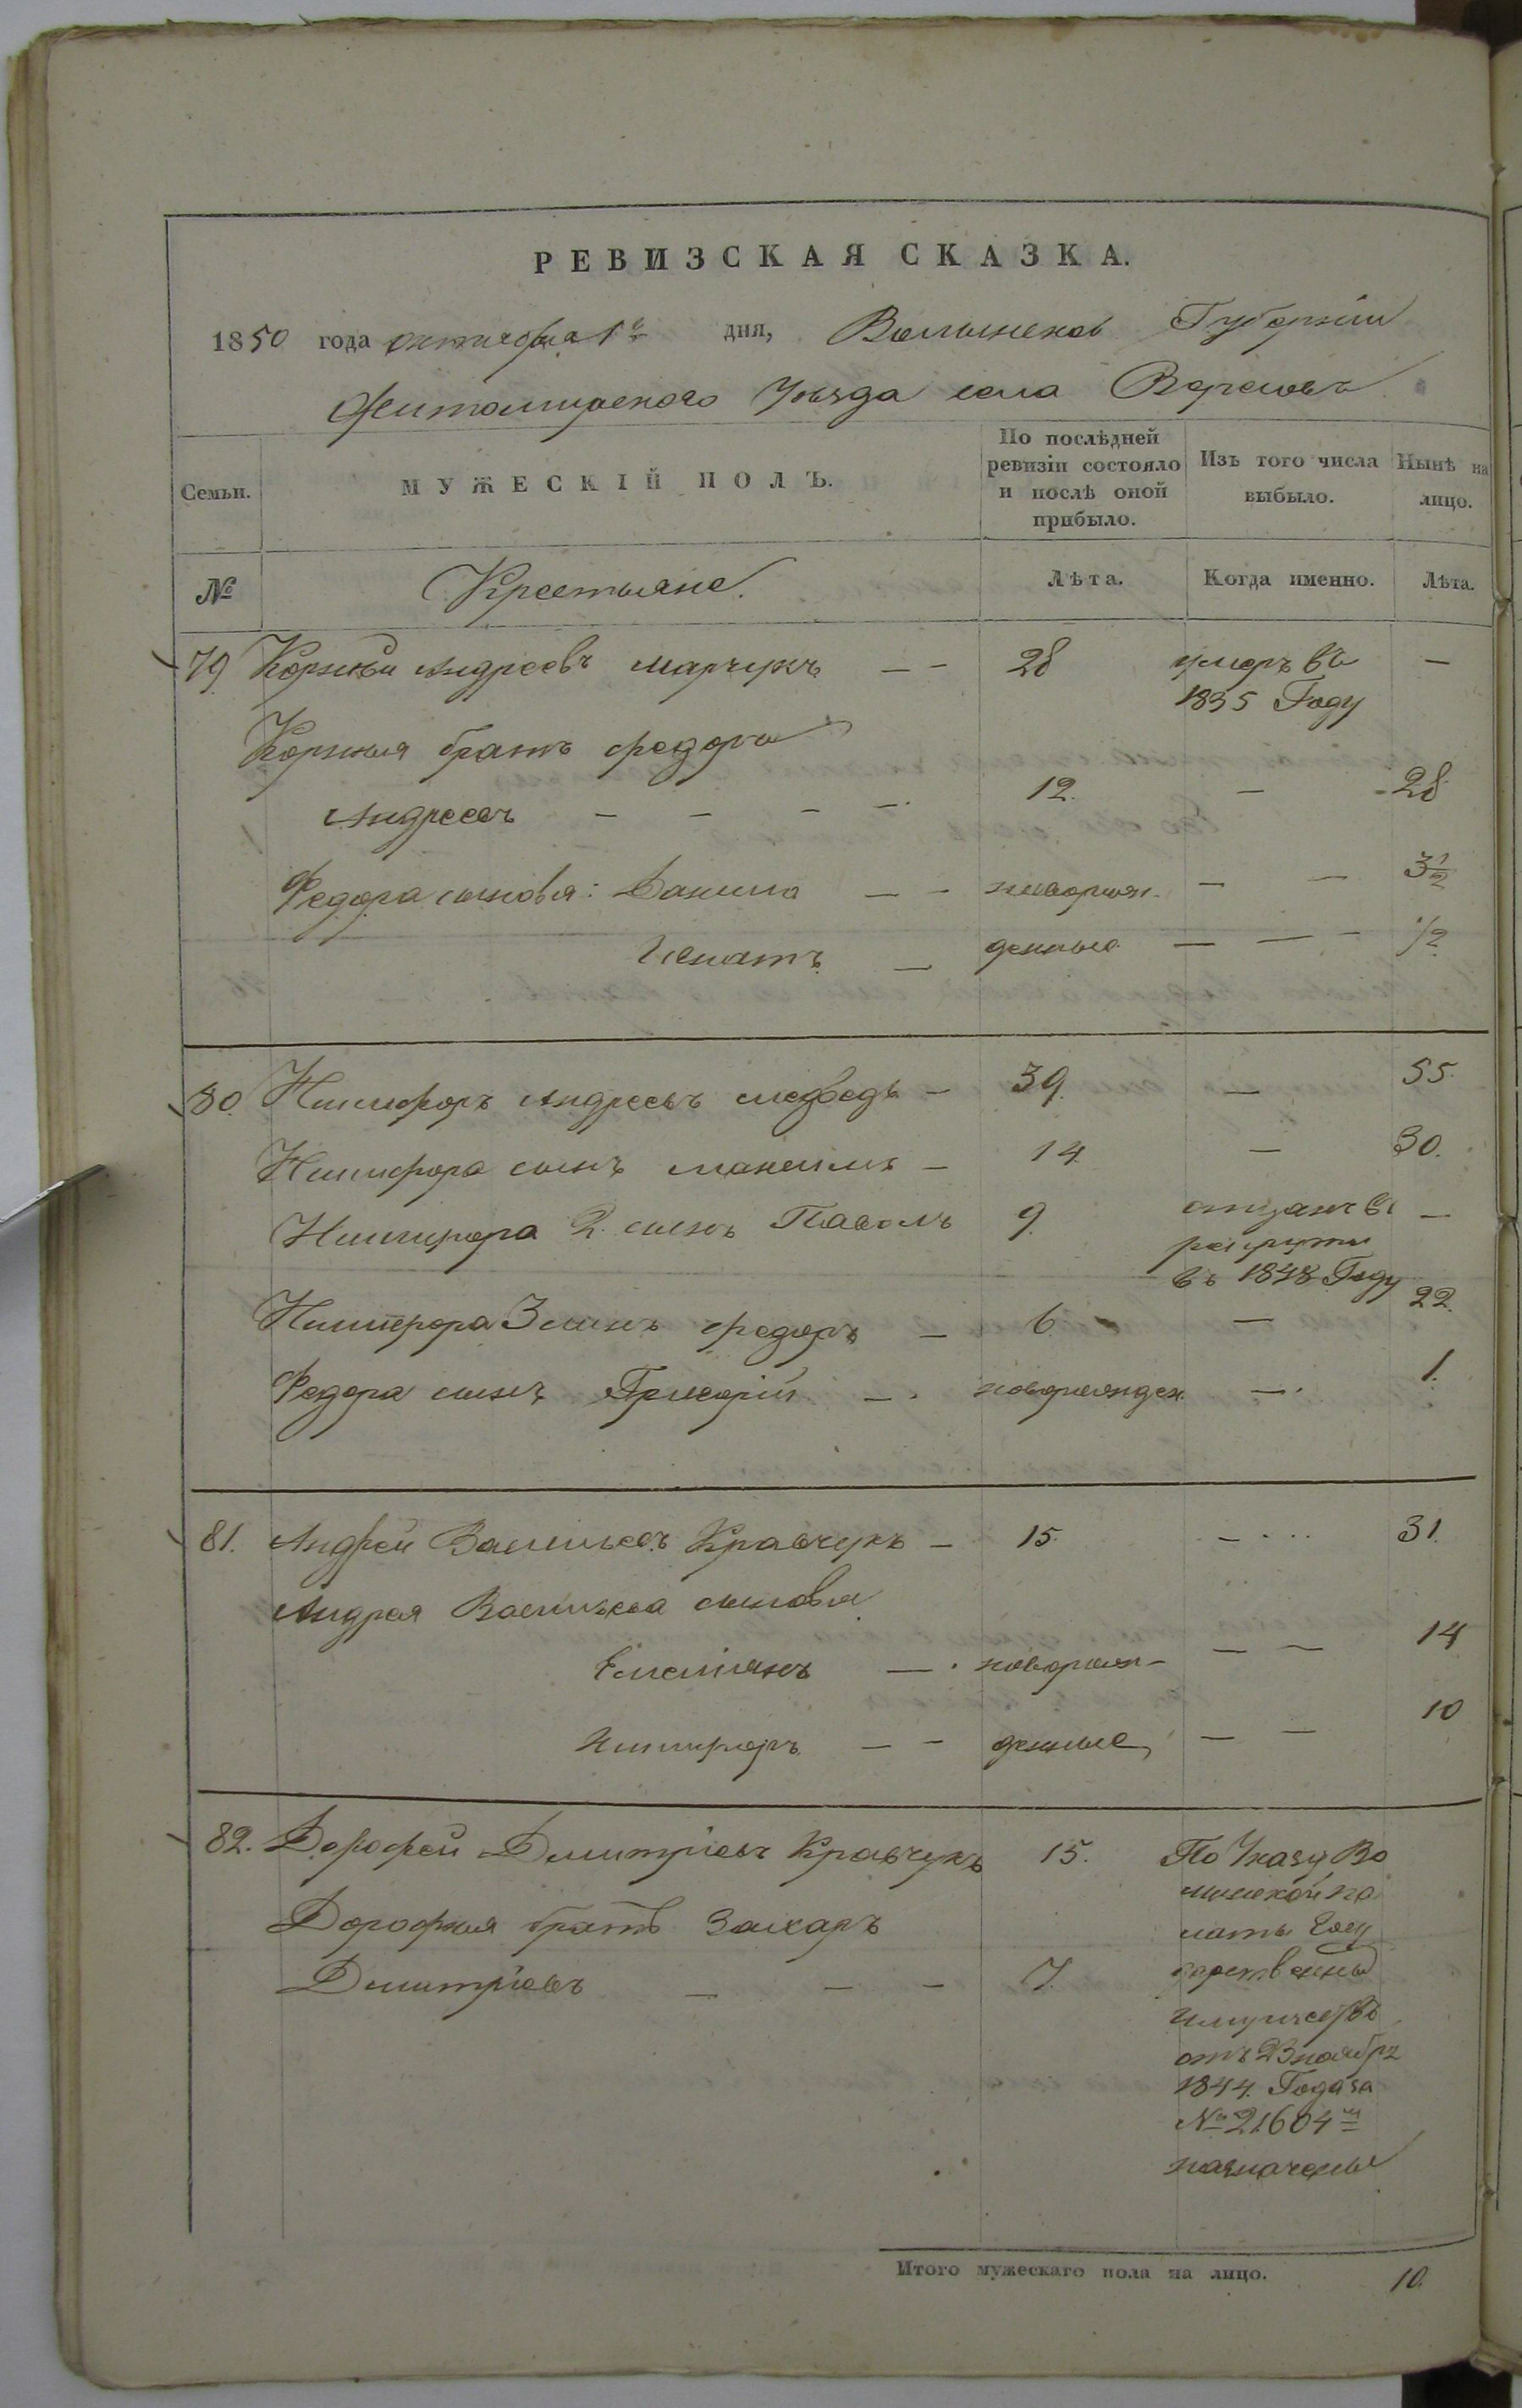 РЕВИЗСКАЯ СКАЗКА.
1850 года октября 1го дня, Волынской Губернии
Житомирского Уезда села
Семьи. МУЖЕСКІЙ ПОЛЪ. По послѣдней ревизіи состояло и послѣ оной прибыло. Изъ того числа выбыло. Нынѣ на лицо.
№ Крестьяне. Лѣта. Когда именно. Лѣта.
79 Корнѣй Андреевъ Марчукъ — — 28 умеръ въ —
1835 Году
Корнѣя братъ Федоръ
Андреевъ — — — — 12. — 28
Федора сыновья: Данило — — новорож- — — 3 1/2
Игнатъ — денные — — — 1/2
80. Никифоръ Андреевъ Медведь — 39. — 55.
Никифора сынъ Максимъ — 14 — 30.
Никифора 2. сынъ Павелъ 9. отданъ въ —
рекруты
въ 1848 Году
Никифора 3 сынъ Федоръ — 6. — 22.
Федора сынъ Григорій — новорожден. — 1.
81. Андрей Васильевъ Кравчукъ — 15. — 31.
Андрея Васильева сыновья
Емельянъ — новорож- — — 14
Никифоръ — — денные — — 10
82. Дорофей Дмитріевъ Кравчукъ 15. По Указу Во
лынской па
Дорофея братъ Захаръ латы Госу
Дмитріевъ — — — 7. дарственны
имуществъ
отъ 23 ноября
1844. Года за
№ 21604 м
назначены
Итого мужескаго пола на лицо. 10.